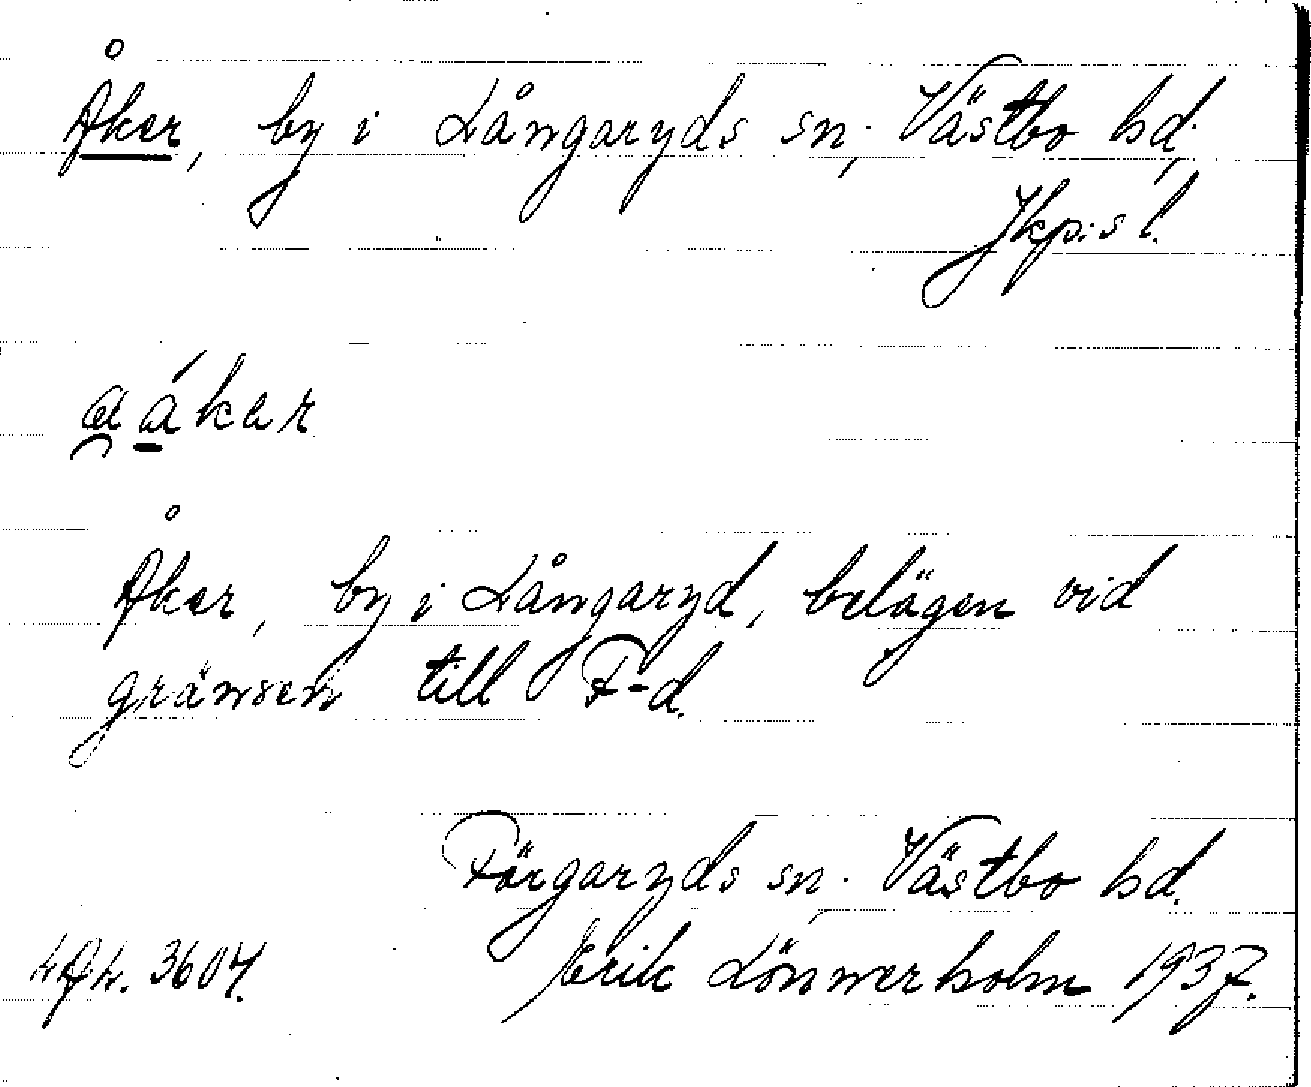 Åker, by i Långaryds sn, Västbo hd,
Jkp:s l.
aákar
Åker, by i Långaryd, belägen vid
gränsen till F-d.
Färgaryds sn. Västbo hd.
3607. Erik Lönnerholm 1937.